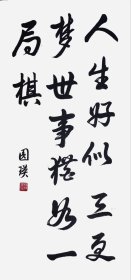 人生好似三更
梦世事猶如一
局棋